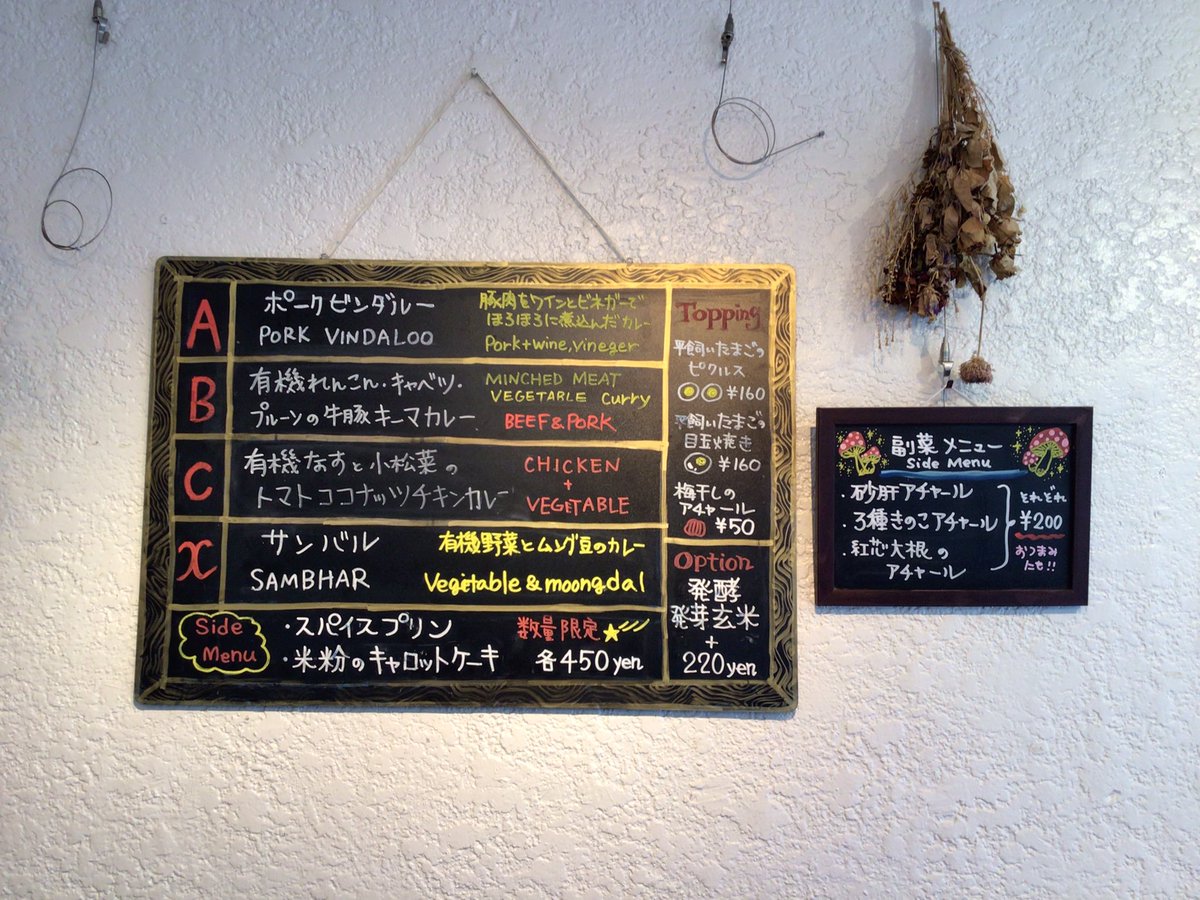 A
ポークビンダルー
PORK VINDALOO
豚肉をワインとビネガーで
ほろほろに煮込んだカレー
Pork+wine,vineger
B
有機れんこん・キャベツ・
プルーンの牛豚キーマカレー
MINCHED MEAT
VEGETABLE Curry
BEEF&PORK
C
有機なすと小松菜の
トマトココナッツチキンカレー
CHICKEN
+
VEGETABLE
x
サンバル
SAMBHAR
有機野菜とムング豆のカレー
Vegetable & moongdal
Side
Menu
・スパイスプリン
・米粉のキャロットケーキ
数量限定
各450yen
Topping
平飼いたまごの
ピクルス
¥160
平飼いたまごの
目玉焼き
¥160
梅干しの
アチャール
¥50
Option
発酵
発芽玄米
+
220yen
副菜メニュー
Side Menu
・砂肝アチャール
・3種きのこアチャール
・紅芯大根の
アチャール
それぞれ
¥200
おつまみ
にも!!